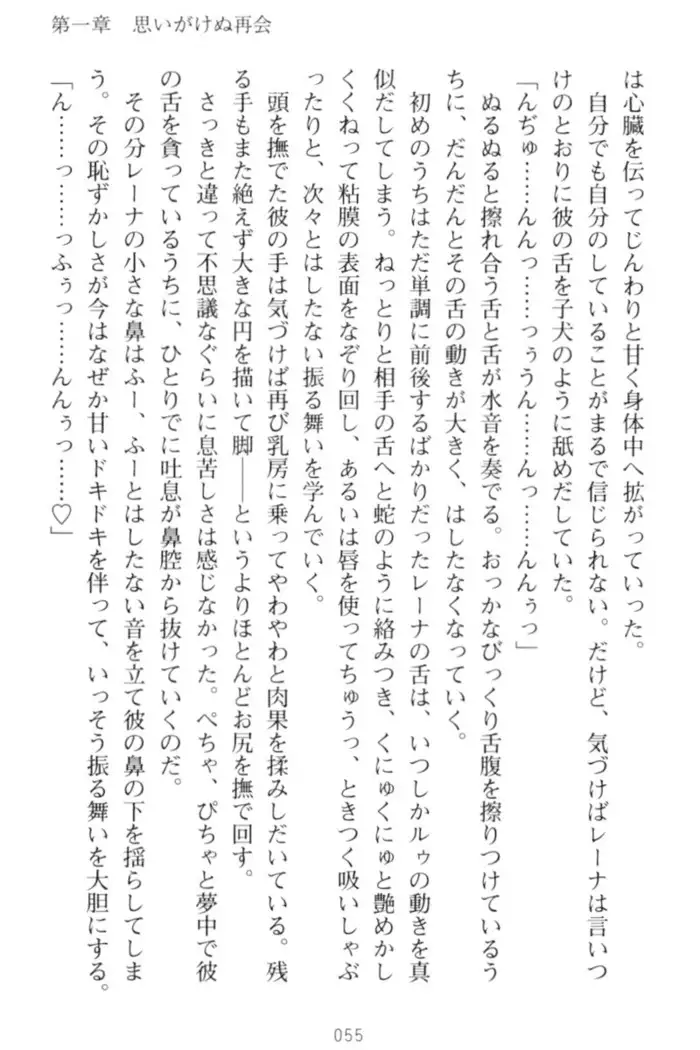 第一章　思いがけぬ再会
は心臓を伝ってじんわりと甘く身体中へ拡がっていった。
　自分でも自分のしていることがまるで信じられない。だけど、気づけばレーナは言いつ
けのとおりに彼の舌を子犬のように舐めだしていた。
「んぢゅ……んんっ……っぅうん……んっ……んんぅっ」
　ぬるぬると擦れ合う舌と舌が水音を奏でる。おっかなびっくり舌腹を擦りつけているう
ちに、だんだんとその舌の動きが大きく、はしたなくなっていく。
　初めのうちはただ単調に前後するばかりだったレーナの舌は、いつしかルゥの動きを真
似だしてしまう。ねっとりと相手の舌へと蛇のように絡みつき、くにゅくにゅと艶めかし
くくねって粘膜の表面をなぞり回し、あるいは唇を使ってちゅうっ、ときつく吸いしゃぶ
ったりと、次々とはしたない振る舞いを学んでいく。
　頭を撫でた彼の手は気づけば再び乳房に乗ってやわやわと肉果を揉みしだいている。残
る手もまた絶えず大きな円を描いて脚――というよりほとんどお尻を撫で回す。
　さっきと違って不思議なぐらいに息苦しさは感じなかった。ぺちゃ、ぴちゃと夢中で彼
の舌を貪っているうちに、ひとりでに吐息が鼻腔から抜けていくのだ。
　その分レーナの小さな鼻はふー、ふーとはしたない音を立て彼の鼻の下を揺らしてしま
う。その恥ずかしさが今はなぜか甘いドキドキを伴って、いっそう振る舞いを大胆にする。
「ん……っ……っふぅっ……んんぅっ……♡」
055